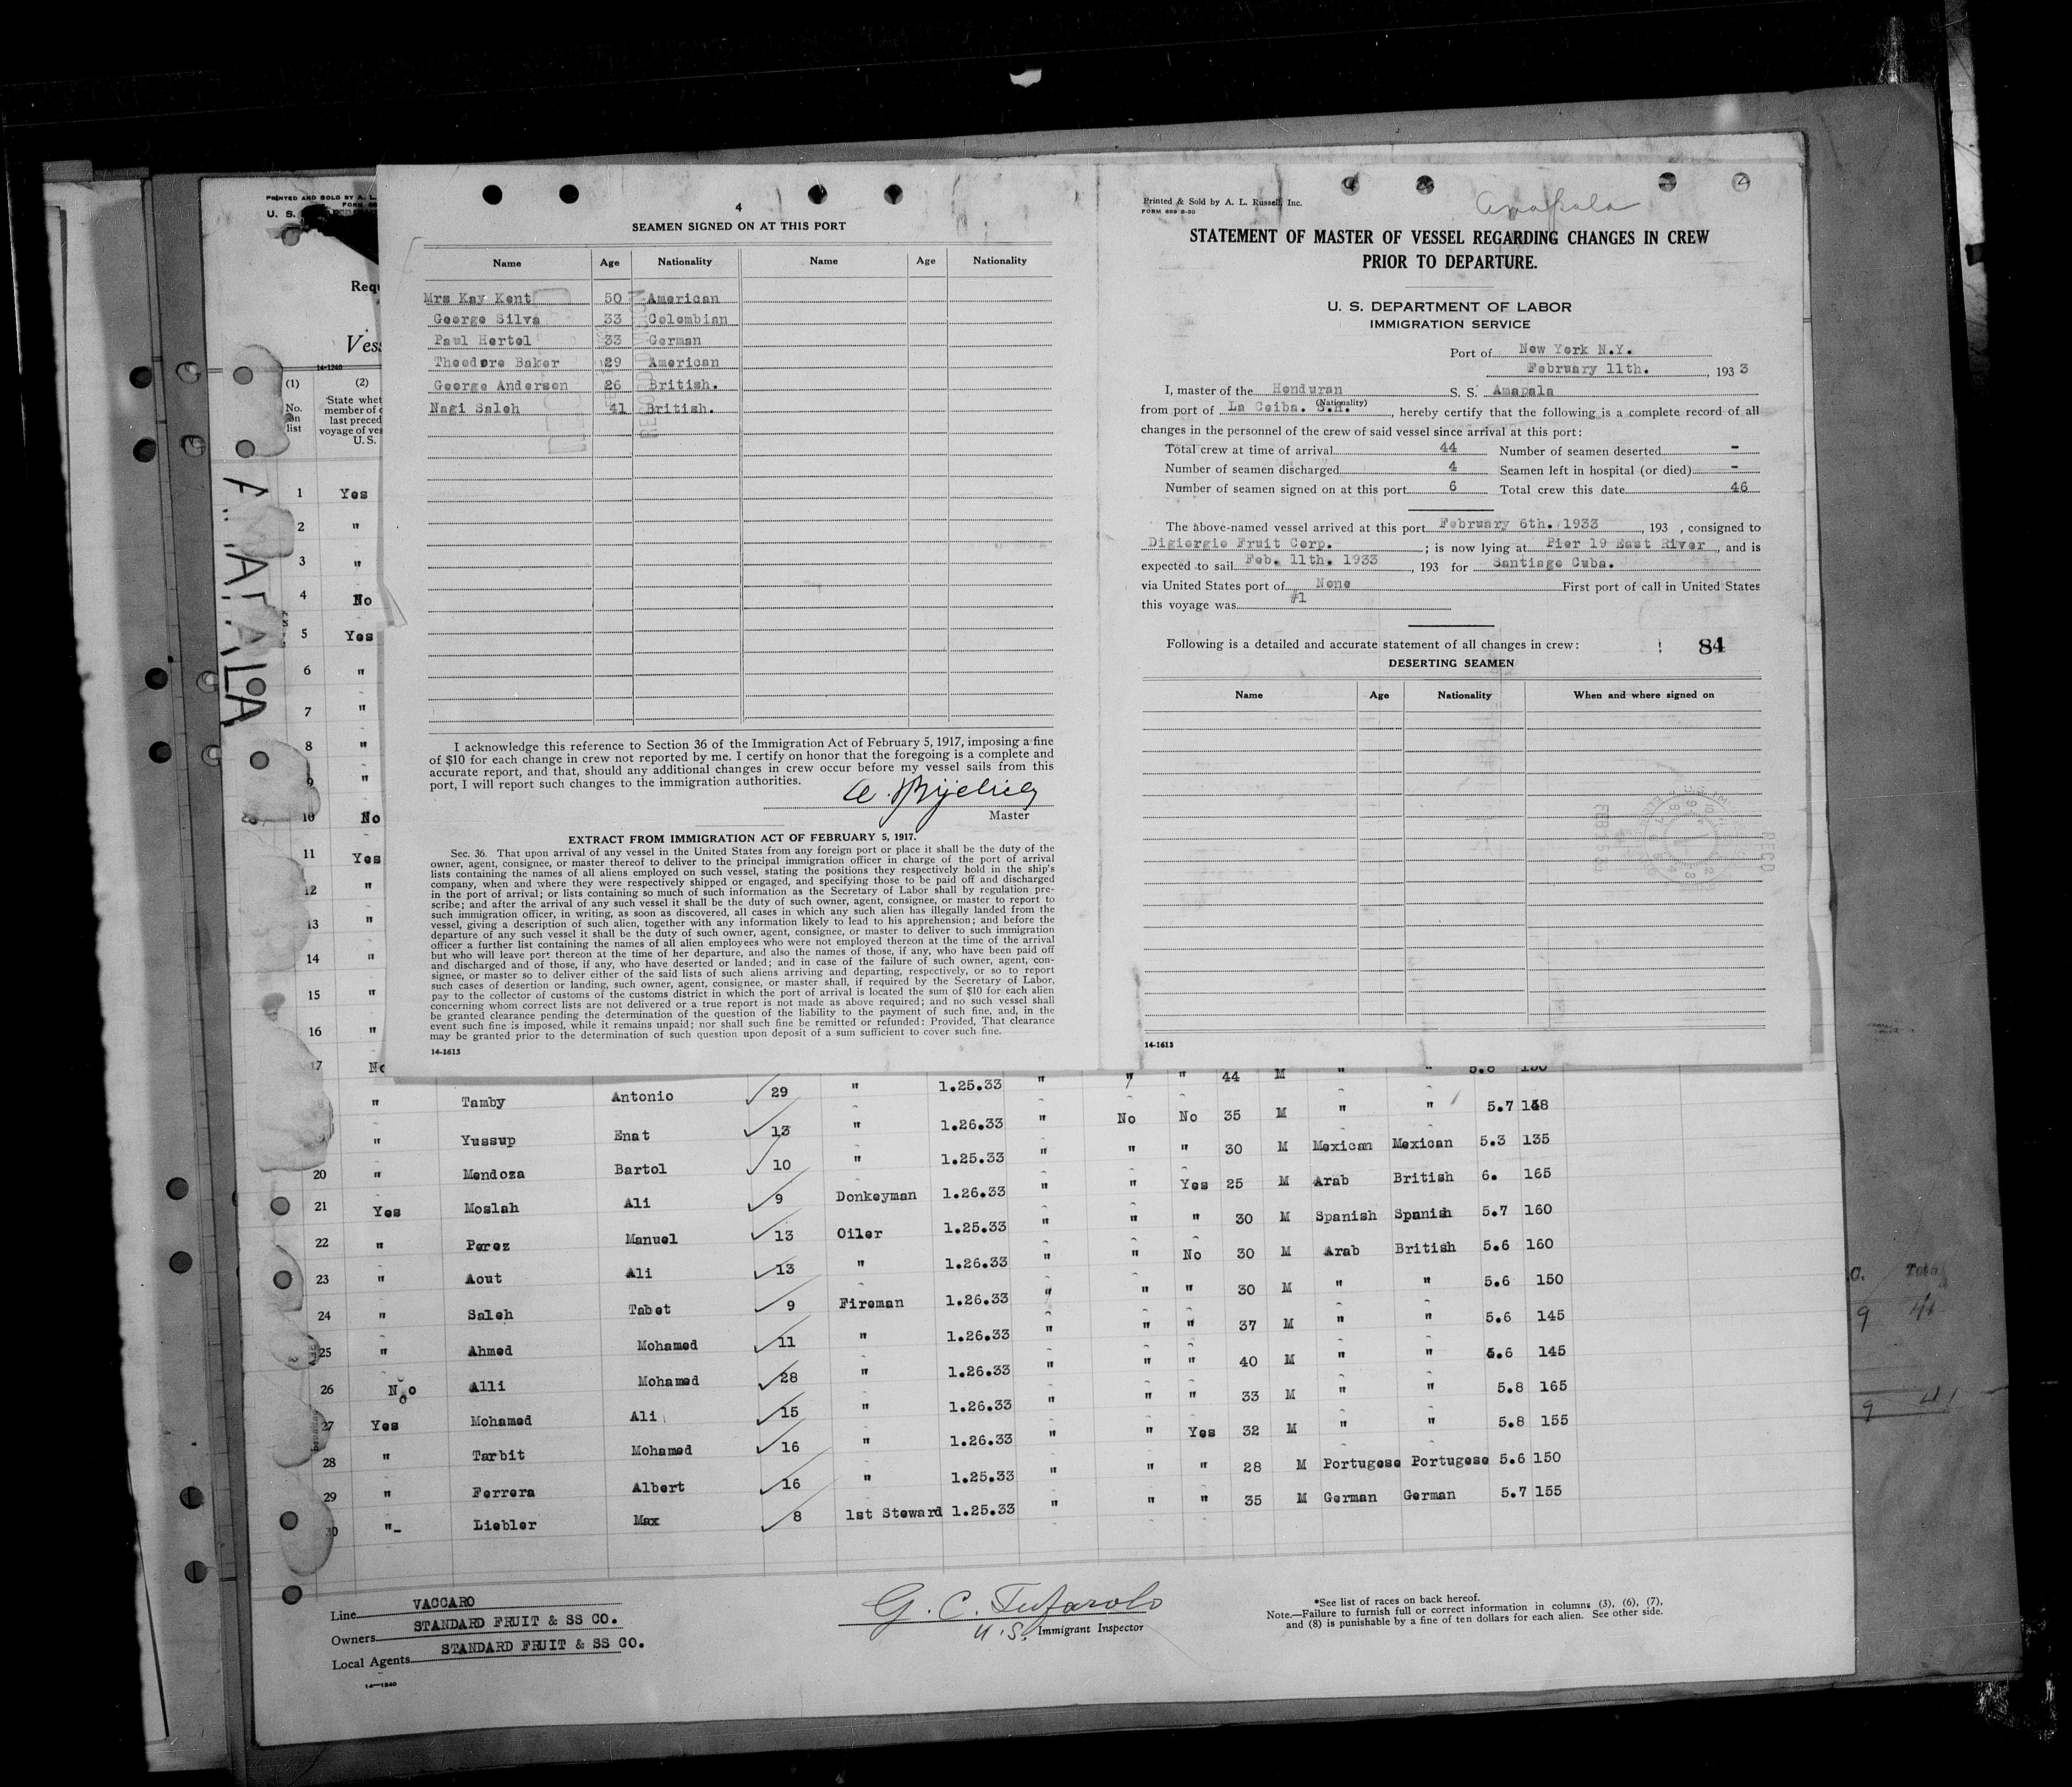 4
SEAMEN SIGNED ON AT THIS PORT
Name Age Nationality Name Age Nationality
Mrs Kay Kent 50 American
George Silva 33 Colombian
Paul Hertel 33 German
Theodore Baker 29 American
George Anderson 26 British.
Nagi Saleh 41 British.
I acknowledge this reference to Section 36 of the Immigration Act of February 5, 1917, imposing a fine
of $10 for each change in crew not reported by me. I certify on honor that the foregoing is a complete and
accurate report, and that, should any additional changes in crew occur before my vessel sails from this
port, I will report such changes to the immigration authorities.
Master
EXTRACT FROM IMMIGRATION ACT OF FEBRUARY 5, 1917.
Sec. 36. That upon arrival of any vessel in the United States from any foreign port or place it shall be the duty of the
owner, agent, consignee, or master thereof to deliver to the principal immigration officer in charge of the port of arrival
lists containing the names of all aliens employed on such vessel, stating the positions they respectively hold in the ship's
company, when and where they were respectively shipped or engaged, and specifying those to be paid off and discharged
in the port of arrival; or lists containing so much of such information as the Secretary of Labor shall by regulation pre-
scribe; and after the arrival of any such vessel it shall be the duty of such owner, agent, consignee, or master to report to
such immigration officer, in writing, as soon as discovered, all cases in which any such alien has illegally landed from the
vessel, giving a description of such alien, together with any information likely to lead to his apprehension; and before the
departure of any such vessel it shall be the duty of such owner, agent, consignee, or master to deliver to such immigration
officer a further list containing the names of all alien employees who were not employed thereon at the time of the arrival
but who will leave port thereon at the time of her departure, and also the names of those, if any, who have been paid off
and discharged and of those, if any, who have deserted or landed; and in case of the failure of such owner, agent, con-
signee, or master so to deliver either of the said lists of such aliens arriving and departing, respectively, or so to report
such cases of desertion or landing, such owner, agent, consignee, or master shall, if required by the Secretary of Labor,
pay to the collector of customs of the customs district in which the port of arrival is located the sum of $10 for each alien
concerning whom correct lists are not delivered or a true report is not made as above required; and no such vessel shall
be granted clearance pending the determination of the question of the liability to the payment of such fine, and, in the
event such fine is imposed, while it remains unpaid; nor shall such fine be remitted or refunded: Provided, That clearance
may be granted prior to the determination of such question upon deposit of a sum sufficient to cover such fine.
14-1613
Amapala
Printed & Sold by A. L. Russell, Inc.
FORM 689 8-30
STATEMENT OF MASTER OF VESSEL REGARDING CHANGES IN CREW
PRIOR TO DEPARTURE.
U. S. DEPARTMENT OF LABOR
IMMIGRATION SERVICE
Port of New York N.Y.
February 11th. , 193 3
I, master of the Honduran S. S. Amapala
(Nationality)
from port of La Ceiba. S.H. , hereby certify that the following is a complete record of all
changes in the personnel of the crew of said vessel since arrival at this port:
Total crew at time of arrival 44 Number of seamen deserted -
Number of seamen discharged 4 Seamen left in hospital (or died) -
Number of seamen signed on at this port 6 Total crew this date 46
The above-named vessel arrived at this port February 6th. 1933 , 193 , consigned to
Digiorgio Fruit Corp. ; is now lying at Pier 19 East River , and is
expected to sail Feb. 11th. 1933 , 193 for Santiago Cuba.
via United States port of None First port of call in United States
this voyage was #1
Following is a detailed and accurate statement of all changes in crew: 84
DESERTING SEAMEN
Name Age Nationality When and where signed on
RECD
14-1613
PRINTED AND SOLD BY A. L.
U. S.
Requ
Vess
14-1240
(1) (2)
No. on list
State whet
member of c
last preced
voyage of ves
U. S.
AMAPALA
1 Yes
2 "
3 "
4 No
5 Yes
6 "
7 "
8 "
9 "
10 No
11 Yes
12 "
13 "
14 "
15 "
16 "
17 No
" Tamby Antonio 29 " 1.25.33 " " " 44 M " " 5.8 150
" Yussup Enat 13 " 1.26.33 " No No 35 M " " 5.7 148
20 " Mendoza Bartol 10 " 1.25.33 " " " 30 M Mexican Mexican 5.3 135
21 Yes Moslah Ali 9 Donkeyman 1.26.33 " " Yes 25 M Arab British 6. 165
22 " Perez Manuel 13 Oiler 1.25.33 " " " 30 M Spanish Spanish 5.7 160
23 " Aout Ali 13 " 1.26.33 " " No 30 M Arab British 5.6 160
24 " Saleh Tabet 9 Fireman 1.26.33 " " " 30 M " " 5.6 150
25 " Ahmed Mohamed 11 " 1.26.33 " " " 37 M " " 5.6 145
26 No Alli Mohamed 28 " 1.26.33 " " " 40 M " " 5.6 145
27 Yes Mohamed Ali 15 " 1.26.33 " " " 33 M " " 5.8 165
28 " Tarbit Mohamed 16 " 1.26.33 " " Yes 32 M " " 5.8 155
29 " Ferrera Albert 16 " 1.25.33 " " " 28 M Portugese Portugese 5.6 150
30 "- Liebler Max 8 1st Steward 1.25.33 " " " 35 M German German 5.7 155
Line VACCARO
Owners STANDARD FRUIT & SS CO.
Local Agents STANDARD FRUIT & SS CO.
14-1240
G. C. Tufarolo
U.S. Immigrant Inspector
*See list of races on back hereof.
Note.—Failure to furnish full or correct information in columns (3), (6), (7),
and (8) is punishable by a fine of ten dollars for each alien. See other side.
Total
9 41
9 41